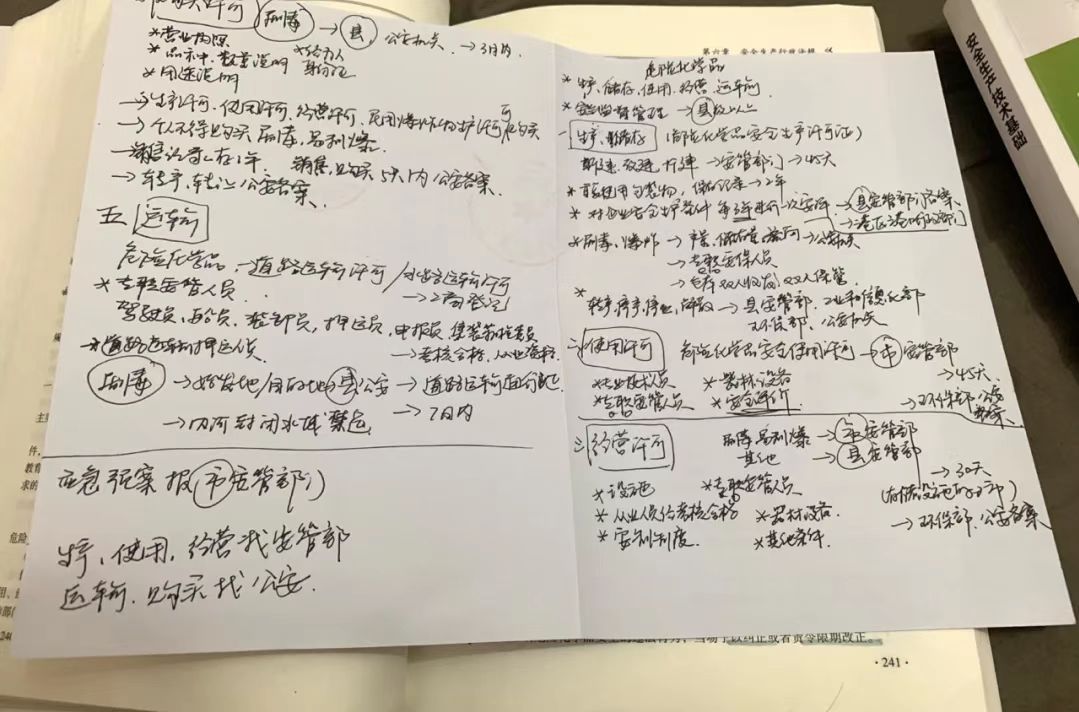 危险化学品
*生产、储存、使用、经营、运输
*安全监督管理→县级以上
一 生产、储存 (危险化学品安全生产许可证)
新建、改建、扩建→安管部门→45天
2年
*对企业安全生产条件 每3年进行一次安评→县安管部门备案
→港区港口部门
*剧毒、爆炸→公安机关
→专职安保人员
→仓库双人收发、双人保管
*转产、停产、停业、解散→县安管部、工业和信息化部
环保部、公安机关
二 使用许可 危险化学品安全使用许可→市安管部
→45天
*专业技术人员 *器材设备
*专职安管人员 *安全评价 →环保部、公安
备案
三 经营许可 剧毒易制爆→市安管部
其他→县安管部
→30天
*设施 *专职安管人员 (有储设施的市)
*从业人员经考核合格 *器材设备 →环保部、公安备案
*安制制度 *其他条件
购买许可 剧毒→县,公安机关→3日内
*营业执照 *经办人
*品种、数量说明 身份证
*用途说明
→生产许可、使用许可、经营许可、民用爆炸物生产许可 可购买
→个人不得购买剧毒,易制爆
→销售记录保存1年 销售,购买5天内公安备案
→转产,转让公安备案
五 运输
危险化学品→道路运输许可/水路运输许可
→工商登记
*专职安管人员
驾驶员,船员,装卸员,押运员,申报员,集装箱检查员
→考核合格、从业资格
*道路运输押运员
剧毒→始发地/目的地县公安→道路运输通行证
→7日内
→内河封闭水域禁运
应急预案报市安管部门
生产、使用,经营找安管部
运输、购买找公安.
第六章 安全生产行政法规
安全生产技术基础
予以纠正或者责令限期改正。
·241·